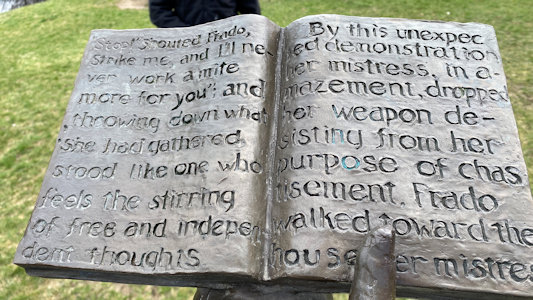 "Stop!" shouted Frado,
strike me, and I'll ne
ver work a mite
more for you"; and
throwing down what
she had gathered,
stood like one who
feels the stirring
of free and indepen
dent thoughts.
By this unexpec
ted demonstration
her mistress, in a-
mazement, dropped
her weapon de-
sisting from her
purpose of chas
tisement. Frado
walked toward the
house her mistress